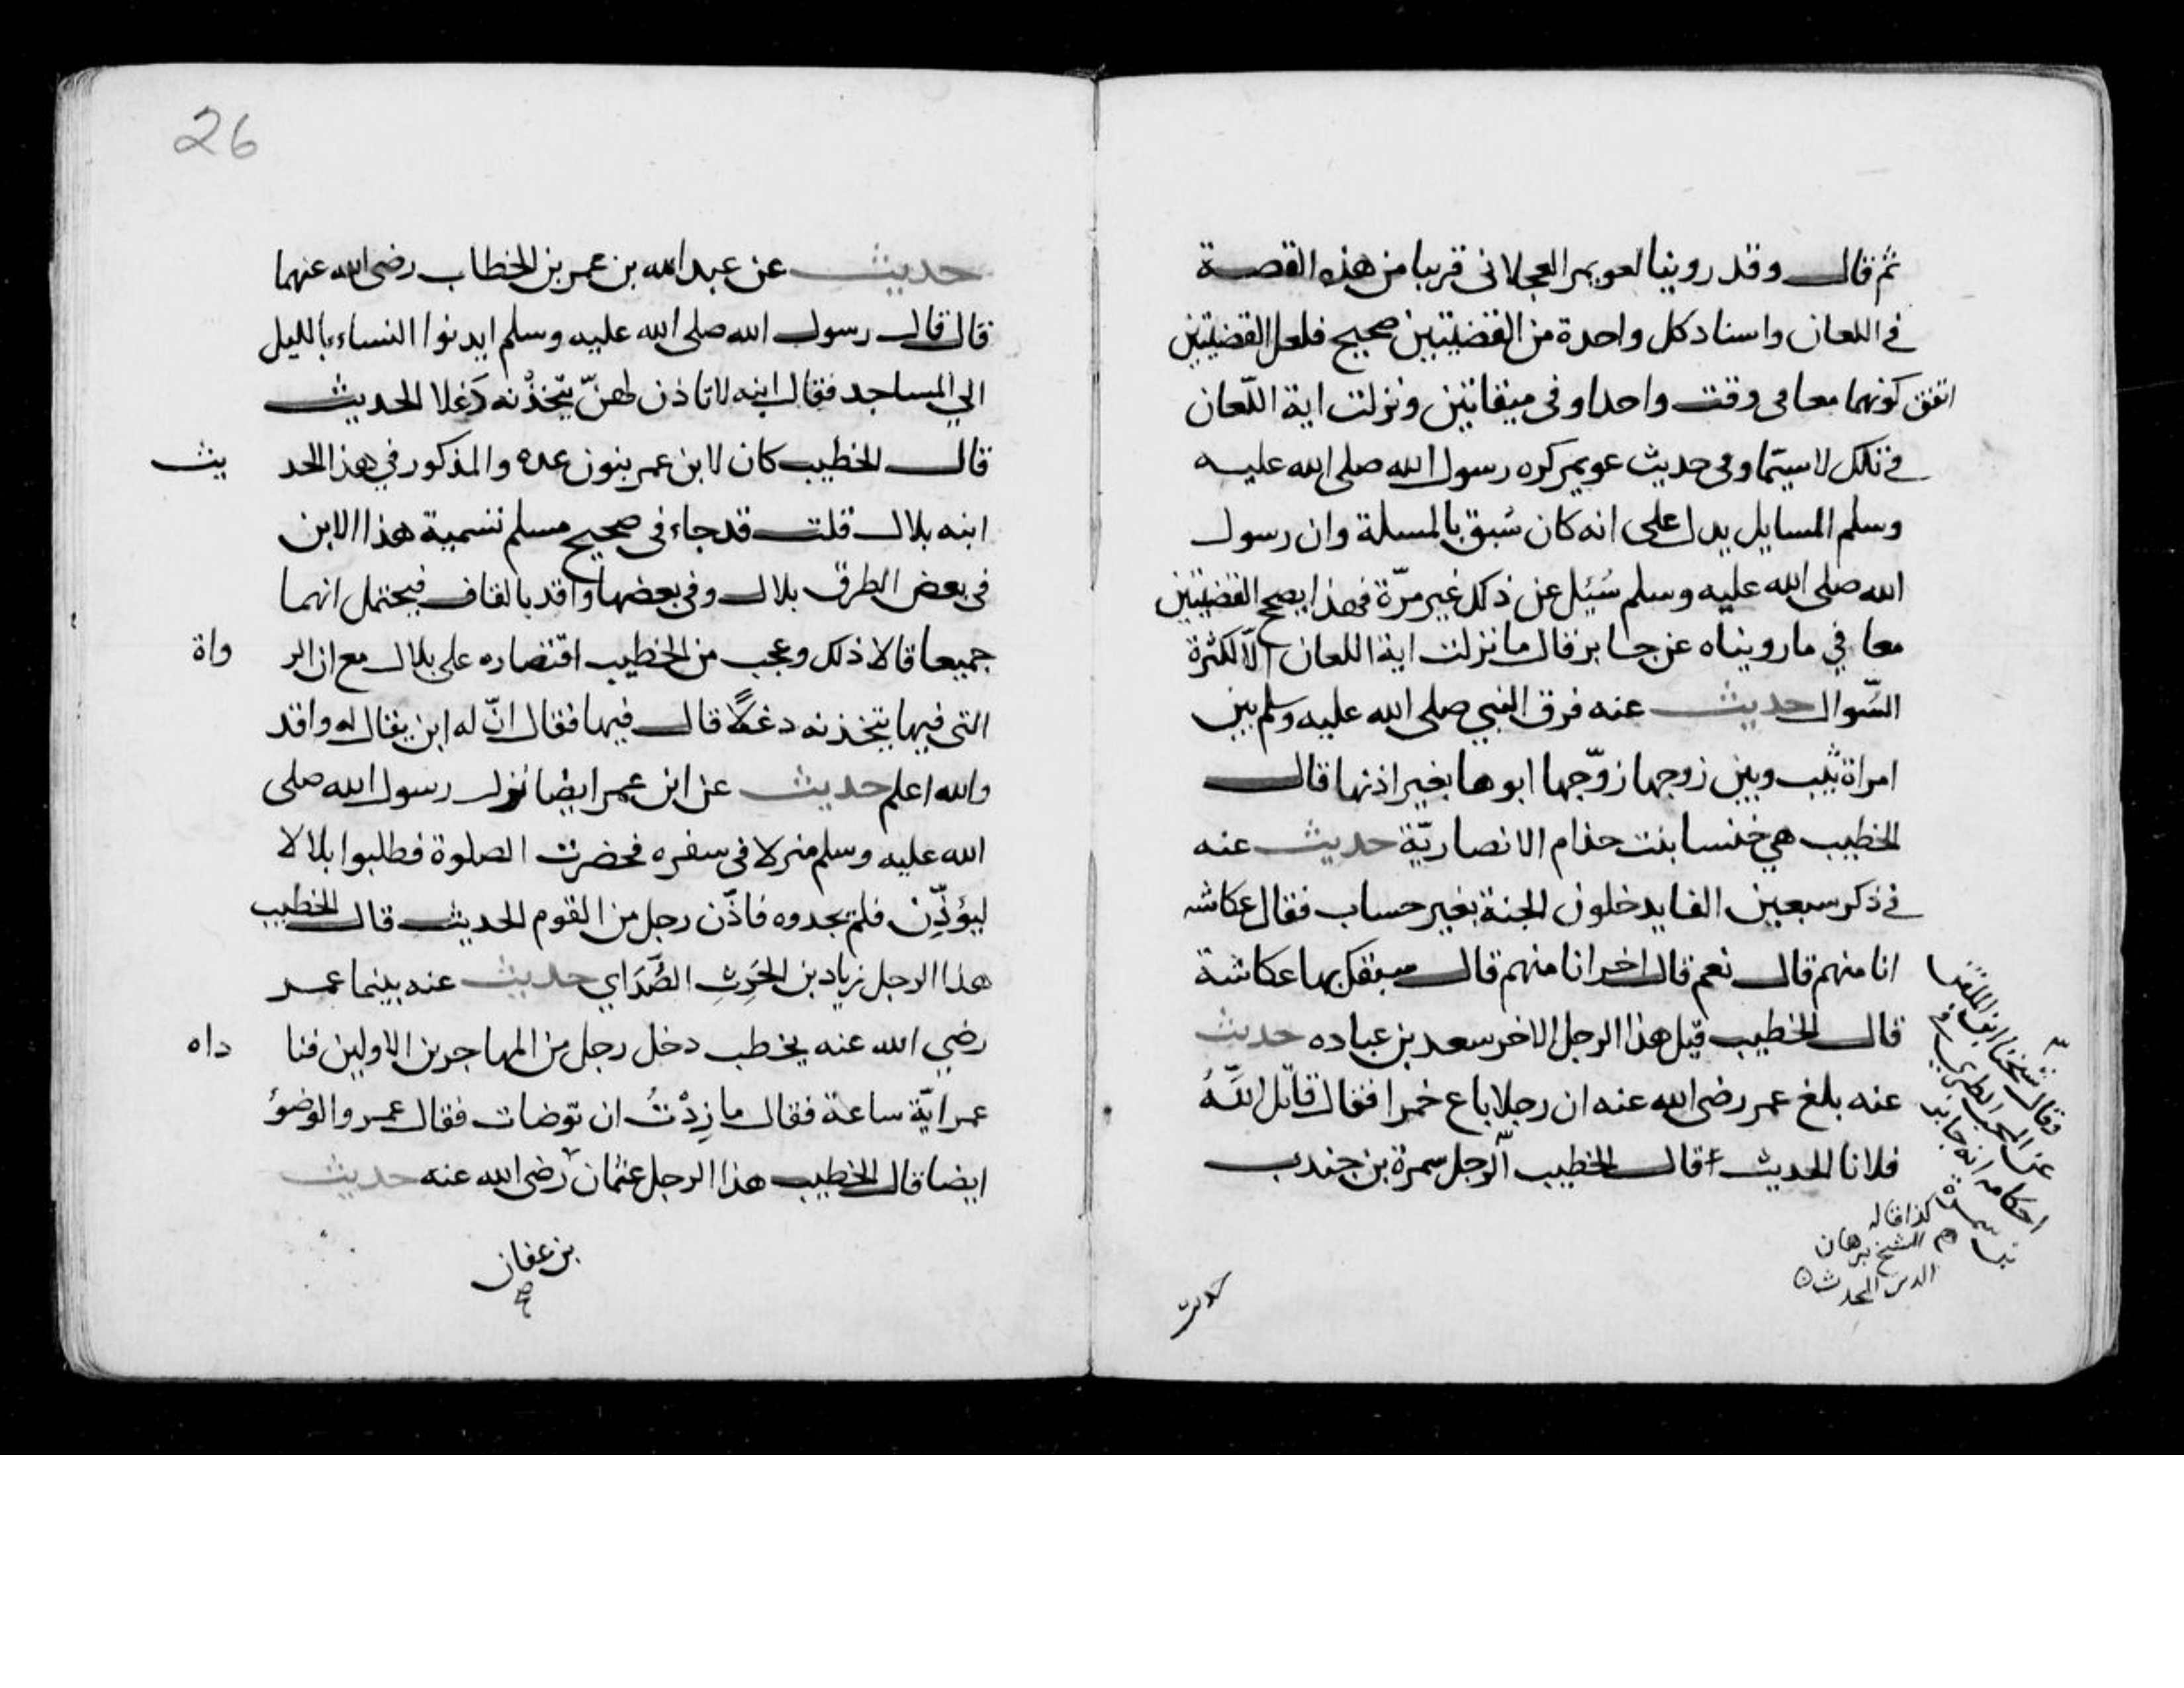 ثم قال وقد روينا لعويمر العجلاني قريبا من هذه القصة
في اللعان واسناد كل واحدة من القضيتين صحيح فلعل القضيتين
اتفق كونهما معا في وقت واحد او في ميقاتين ونزلت اية اللّعان
في تلك لا سيّما وفي حديث عويمر كره رسول الله صلى الله عليه
وسلم المسايل يدل على انه كان سُبق بالمسلة وان رسول
الله صلى الله عليه وسلم سُئِل عن ذلك غير مرّة فهذا يصحح القضيتين
معا في ما رويناه عن جابر قال ما نزلت اية اللعان الّا لكثرة
السّوال حديث عنه فرق النبي صلى الله عليه وسلم بين
امراة ثيّب وبين زوجها زوّجها ابوها بغير اذنها قال
الخطيب هي خنسا بنت حذام الانصاريّة حديث عنه
في ذكر سبعين الفا يدخلون الجنة بغير حساب فقال عكاشه
انا منهم قال نعم قال اخر انا منهم قال سبقك بها عكاشة
قال الخطيب قيل هذا الرجل الاخر سعد بن عباده حديث
عنه بلغ عمر رضى الله عنه ان رجلا باع خمرا فقال قاتل اللّهُ
فلانا الحديث قال الخطيب الّرجل سمرة بن جندب
وقال شيخنا ابن الملقن
عن المحب الطبري في
احكامه انه جابر
بن سمرة
كذا قاله
الشيخ برهان
الدين المحدث
حديث
26
حديث عن عبد الله بن عمر بن الخطاب رضى الله عنهما
قال قال رسول الله صلى الله عليه وسلم ايدنوا النساء بالليل
الي المساجد فقال ابنه لا تاذن لهنّ يتّخذْنه دَغلا الحديث
قال الخطيب كان لابن عمر بنون عده والمذكور في هذا الحد يث
ابنه بلال قلت قد جاء في صحيح مسلم تسمية هذا الابن
في بعض الطرق بلال وفي بعضها واقد بالقاف فيحتمل انهما
جميعا قالا ذلك وعجب من الخطيب اقتصاره على بلال مع ان الر واة
التى فيها يتخذنه دغلًا قال فيها فقال انّ له ابن يقال له واقد
والله اعلم حديث عن ابن عمر ايضا نزل رسول الله صلى
الله عليه وسلم منزلا في سفره فحضرت الصلوة فطلبوا بلالا
ليؤذِّن فلم يجدوه فاذّن رجل من القوم الحديث قال الخطيب
هذا الرجل زياد بن الحَرِثِ الصُّدَاي حديث عنه بينما عمر
رضي الله عنه يخطب دخل رجل من المهاجرين الاولين فنا داه
عمر ايّة ساعة فقال ما زِدْتُ ان توّضات فقال عمر والوضوُ
ايضا قال الخطيب هذا الرجل عثمان رضى الله عنه حديث
بن عفان
صح